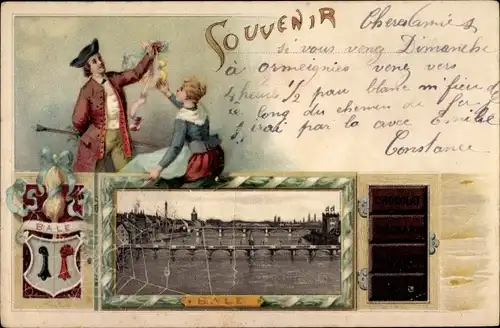 SOUVENIR
Cheres Amies
si vous veney Dimanche
à Ormeignies veney vers
4 heures 1/2 par blanc m
le long du chemin de fer
j'irai par la avec Emilie
Constance
BALE
BALE
CHOCOLAT
SUCHARD